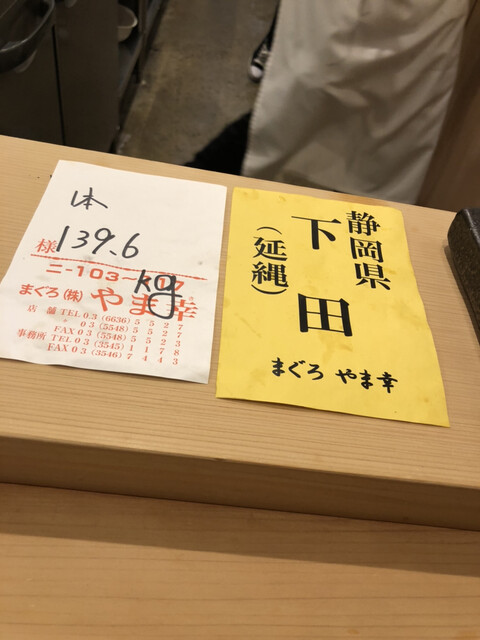 本
様 139.6
kg
ニ-103~
17
まぐろ(株)やま幸
店舗 TEL 03(6636)5527
〃 03(5548)5527
FAX 03(5548)5533
事務所 TEL 03(3545)1178
FAX 03(3546)7443
静岡県
下田
(延縄)
まぐろ やま幸